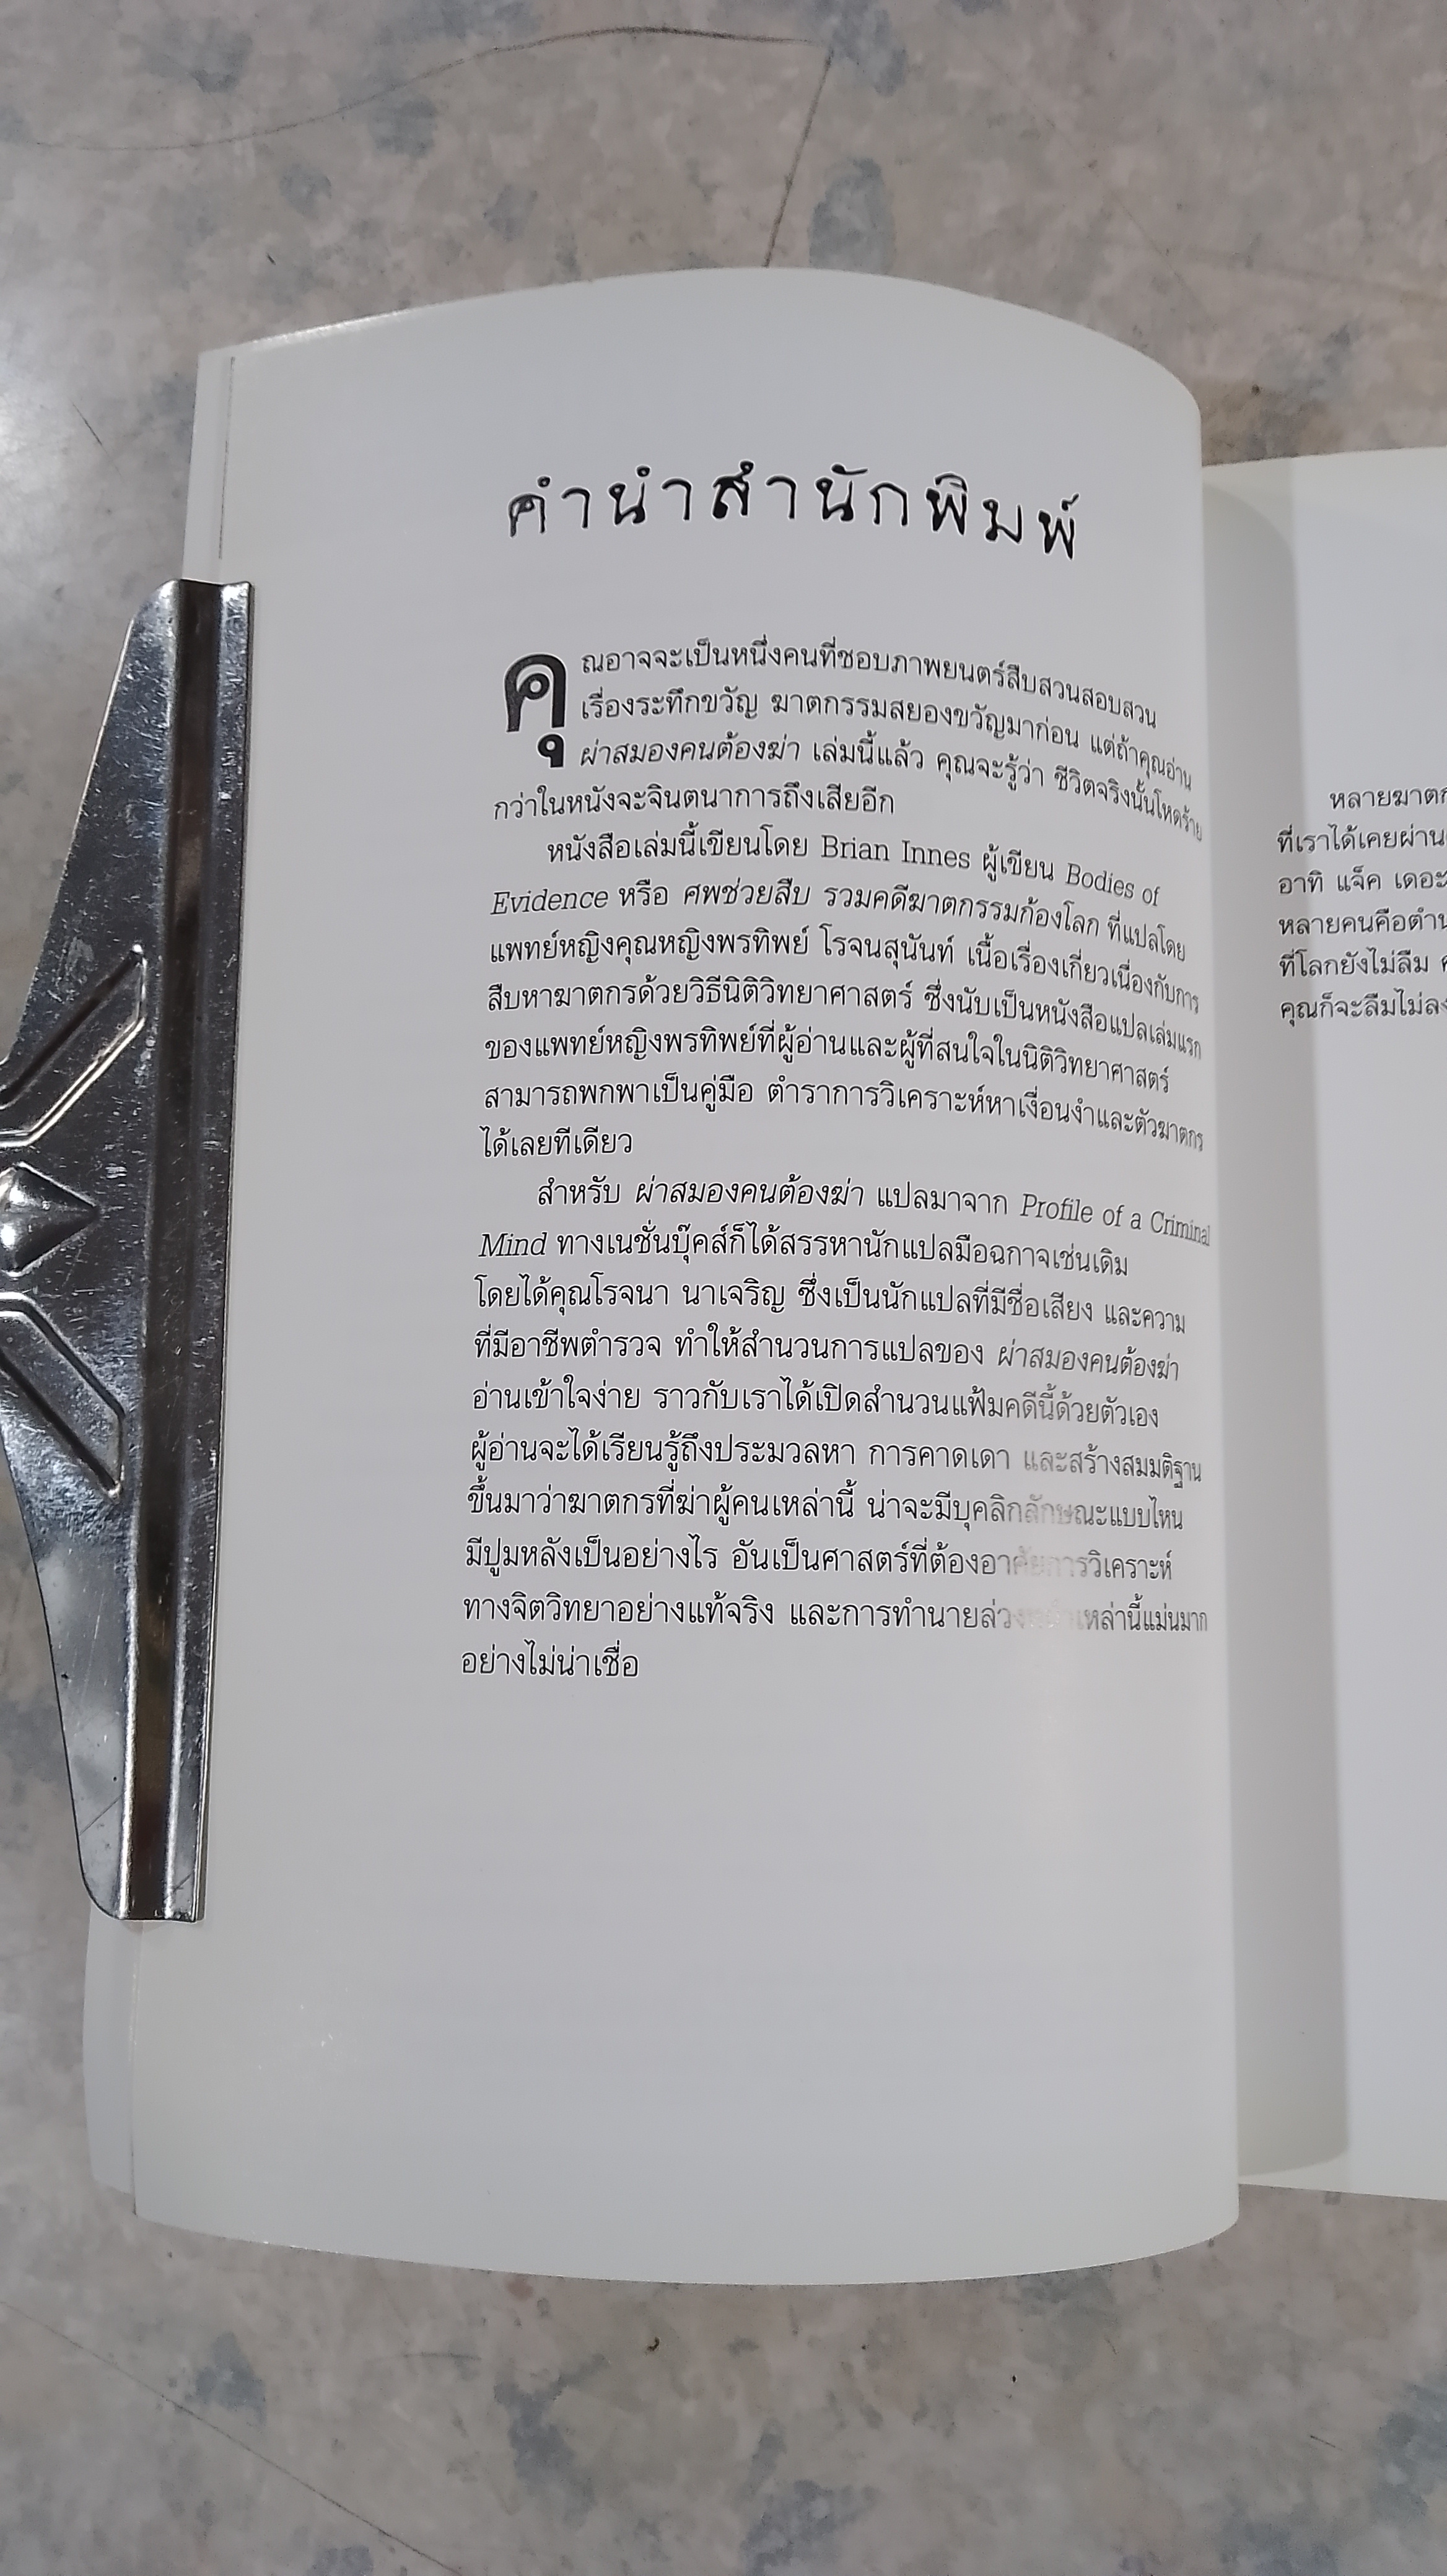 คำนำสำนักพิมพ์
คุณอาจจะเป็นหนึ่งคนที่ชอบภาพยนตร์สืบสวนสอบสวน
เรื่องระทึกขวัญ ฆาตกรรมสยองขวัญมาก่อน แต่ถ้าคุณอ่าน
ผ่าสมองคนต้องฆ่า เล่มนี้แล้ว คุณจะรู้ว่า ชีวิตจริงนั้นโหดร้าย
กว่าในหนังจะจินตนาการถึงเสียอีก
หนังสือเล่มนี้เขียนโดย Brian Innes ผู้เขียน Bodies of
Evidence หรือ ศพช่วยสืบ รวมคดีฆาตกรรมก้องโลก ที่แปลโดย
แพทย์หญิงคุณหญิงพรทิพย์ โรจนสุนันท์ เนื้อเรื่องเกี่ยวเนื่องกับการ
สืบหาฆาตกรด้วยวิธีนิติวิทยาศาสตร์ ซึ่งนับเป็นหนังสือแปลเล่มแรก
ของแพทย์หญิงพรทิพย์ที่ผู้อ่านและผู้ที่สนใจในนิติวิทยาศาสตร์
สามารถพกพาเป็นคู่มือ ตำราการวิเคราะห์หาเงื่อนงำและตัวฆาตกร
ได้เลยทีเดียว
สำหรับ ผ่าสมองคนต้องฆ่า แปลมาจาก Profile of a Criminal
Mind ทางเนชั่นบุ๊คส์ก็ได้สรรหานักแปลมือฉกาจเช่นเดิม
โดยได้คุณโรจนา นาเจริญ ซึ่งเป็นนักแปลที่มีชื่อเสียง และความ
ที่มีอาชีพตำรวจ ทำให้สำนวนการแปลของ ผ่าสมองคนต้องฆ่า
อ่านเข้าใจง่าย ราวกับเราได้เปิดสำนวนแฟ้มคดีนี้ด้วยตัวเอง
ผู้อ่านจะได้เรียนรู้ถึงประมวลหา การคาดเดา และสร้างสมมติฐาน
ขึ้นมาว่าฆาตกรที่ฆ่าผู้คนเหล่านี้ น่าจะมีบุคลิกลักษณะแบบไหน
มีปูมหลังเป็นอย่างไร อันเป็นศาสตร์ที่ต้องอาศัยการวิเคราะห์
ทางจิตวิทยาอย่างแท้จริง และการทำนายล่วงหน้าเหล่านี้แม่นมาก
อย่างไม่น่าเชื่อ
หลายฆาต
ที่เราได้เคยผ่าน
อาทิ แจ็ค เดอะ
หลายคนคือ
ที่โลกยังไม่ลืม
คุณก็จะลืมไม่ลง